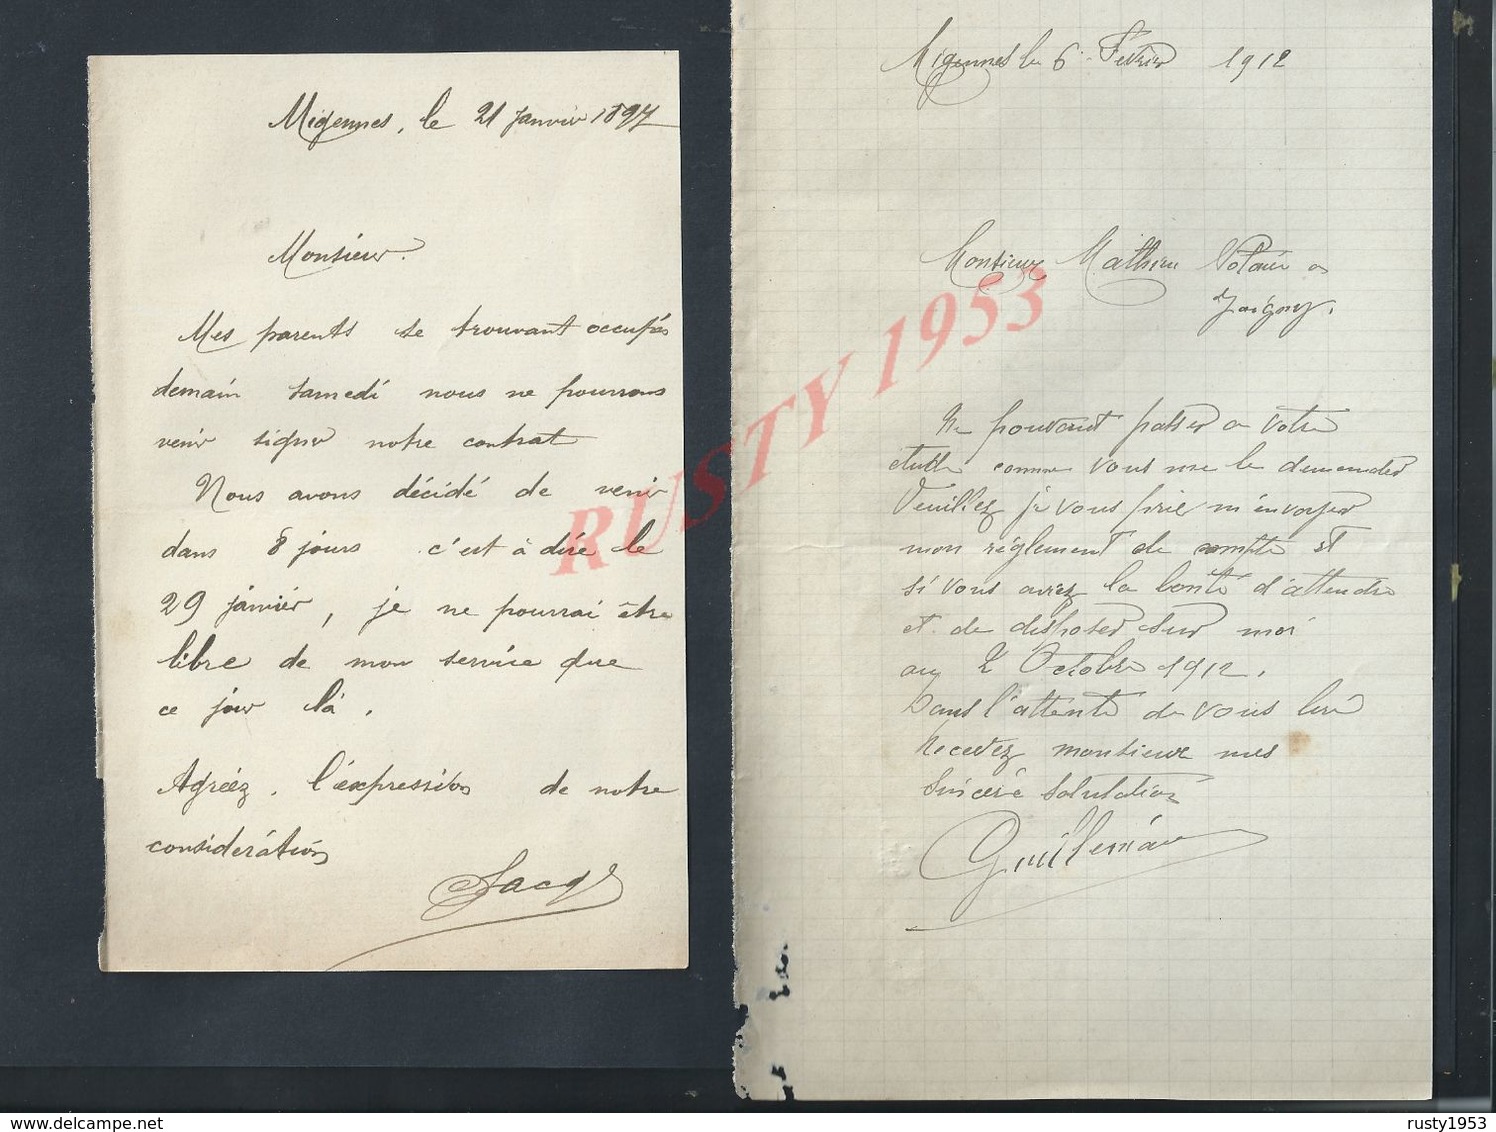 Migennes, le 21 Janvier 1897
Monsieur.
Mes parents se trouvant occupés
demain samedi nous ne pourrons
venir signer notre contrat
Nous avons décidé de venir
dans 8 jours c'est à dire le
29 janvier, je ne pourrai être
libre de mon service que
ce jour là.
Agréez, l'expression de notre
considération
Jacq
Migennes le 6 Fevrier 1912
Monsieur Mathieu Notaire a
Joigny.
Ne pouvant passer a votre
etude comme vous me le demander
Veuillez je vous prie m'envoyer
mon réglement de compte et
si vous aviez la bonté d'attendre
et de disposer sur moi
au 2 Octobre 1912.
Dans l'attente de vous lire
Recevez monsieur mes
Sincère Salutation
Guillemin
RUSTY 1953
rusty1953